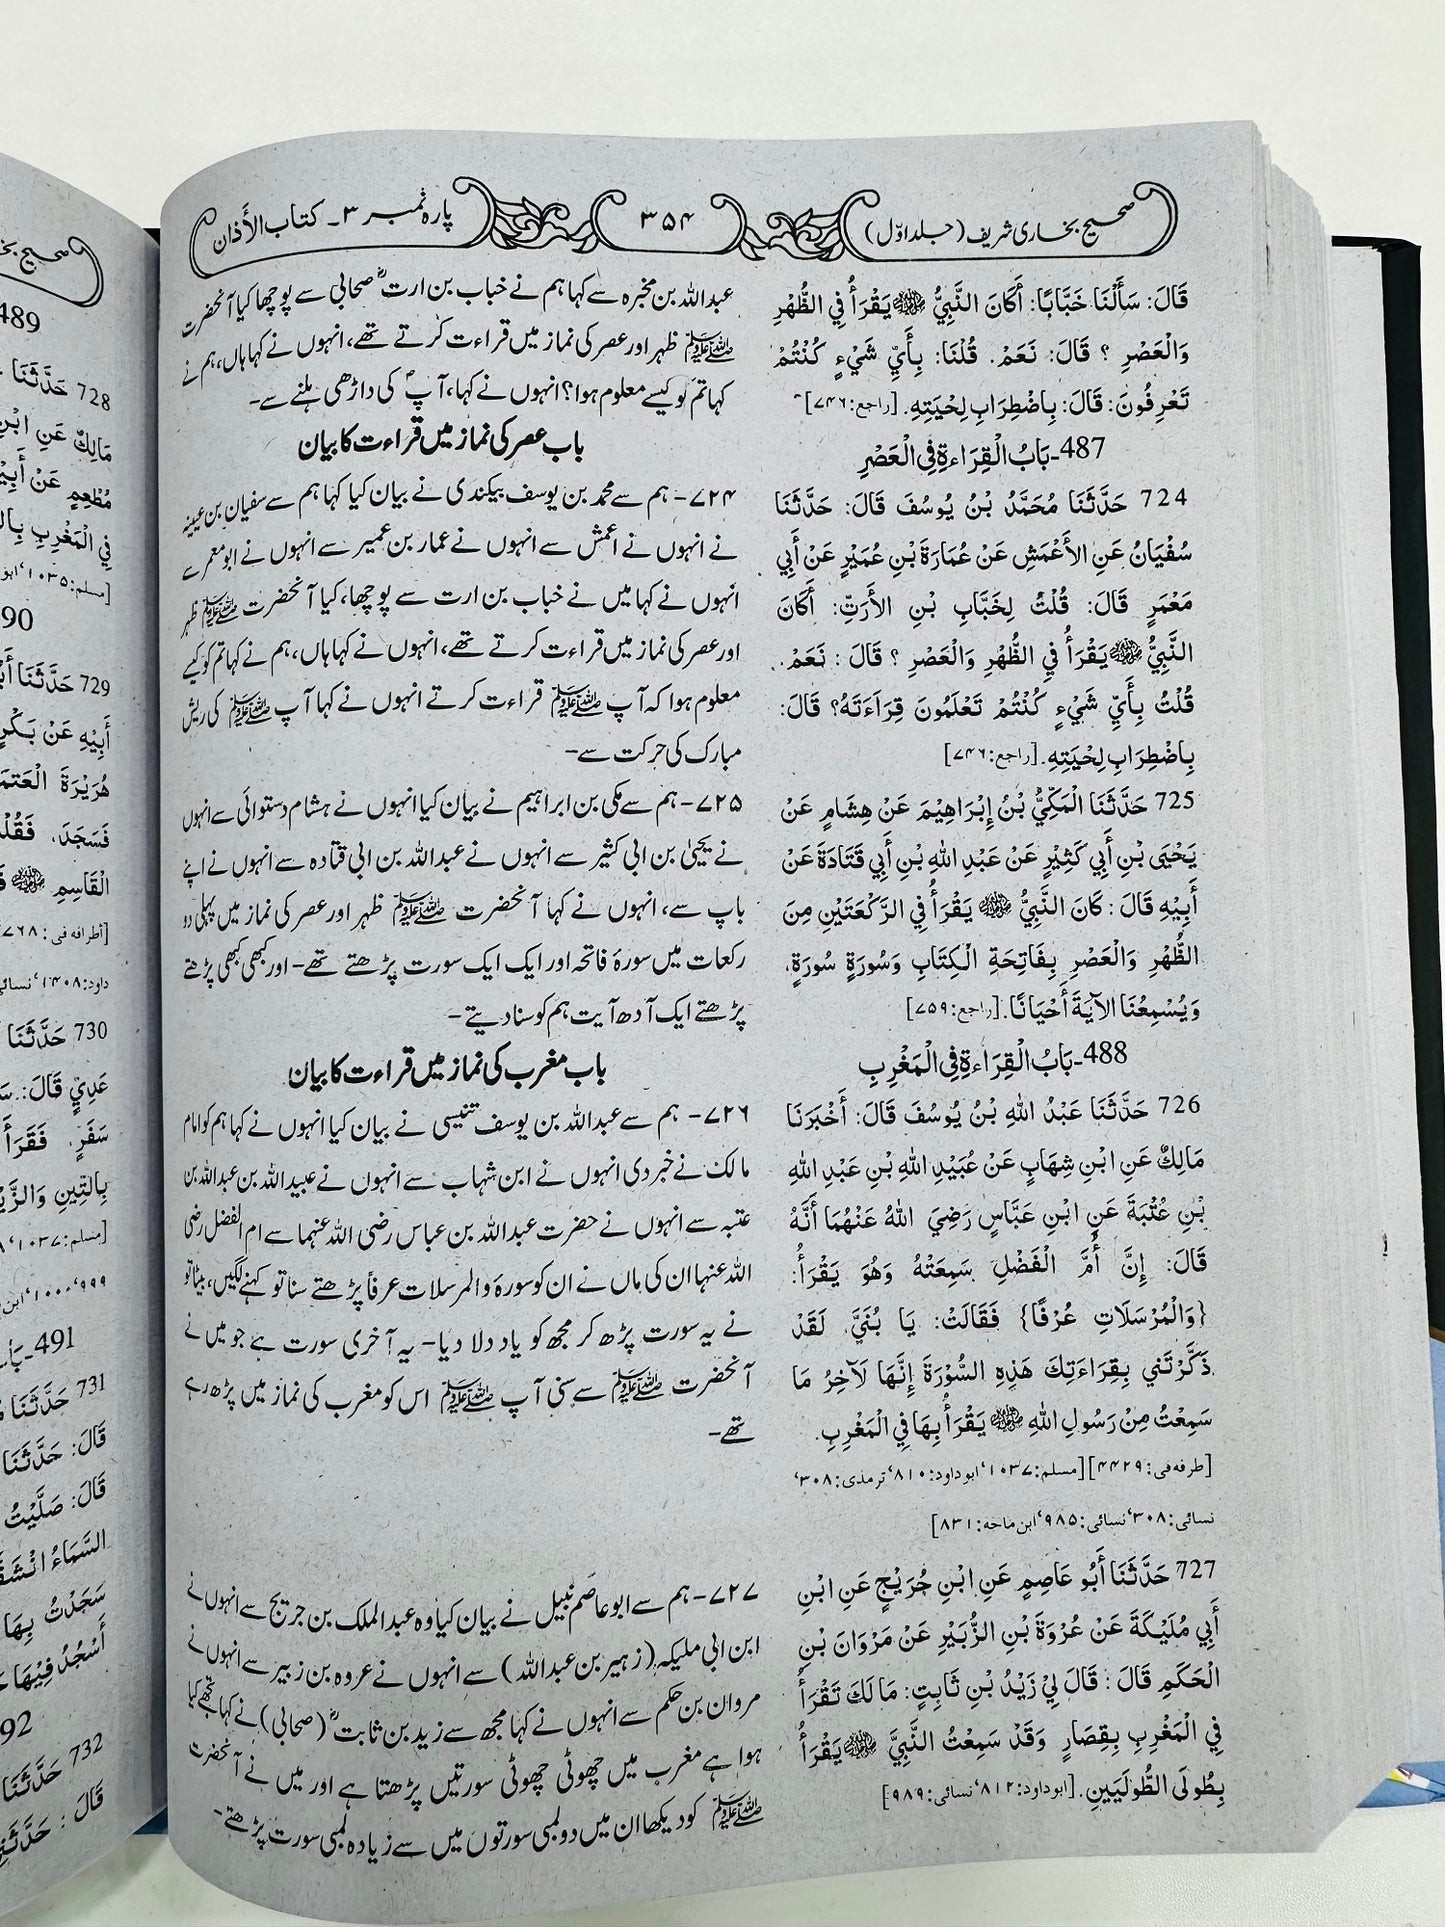 صحیح بخاری شریف (جلد اوّل)
۳۵۴
پارہ نمبر ۳ ۔ کتاب الأذان
قَالَ: سَأَلْنَا خَبَّابًا: أَكَانَ النَّبِيُّ ﷺ يَقْرَأُ فِي الظُّهْرِ
وَالْعَصْرِ ؟ قَالَ: نَعَمْ. قُلْنَا: بِأَيِّ شَيْءٍ كُنْتُمْ
تَعْرِفُونَ: قَالَ: بِاضْطِرَابِ لِحْيَتِهِ. [راجع: ۷۴۶]
487۔ بَابُ الْقِرَاءةِ فِي الْعَصْرِ
724 حَدَّثَنَا مُحَمَّدُ بْنُ يُوسُفَ قَالَ: حَدَّثَنَا
سُفْيَانُ عَنِ الأَعْمَشِ عَنْ عُمَارَةَ بْنِ عُمَيْرٍ عَنْ أَبِي
مَعْمَرٍ قَالَ: قُلْتُ لِخَبَّابِ بْنِ الأَرَتِّ: أَكَانَ
النَّبِيُّ ﷺ يَقْرَأُ فِي الظُّهْرِ وَالْعَصْرِ ؟ قَالَ : نَعَمْ.
قُلْتُ بِأَيِّ شَيْءٍ كُنْتُمْ تَعْلَمُونَ قِرَاءَتَهُ؟ قَالَ:
بِاضْطِرَابِ لِحْيَتِهِ. [راجع: ۷۴۶]
725 حَدَّثَنَا الْمَكِّيُّ بْنُ إِبْرَاهِيْمَ عَنْ هِشَامٍ عَنْ
يَحْيَى بْنِ أَبِي كَثِيْرٍ عَنْ عَبْدِ اللهِ بْنِ أَبِي قَتَادَةَ عَنْ
أَبِيْهِ قَالَ : كَانَ النَّبِيُّ ﷺ يَقْرَأُ فِي الرَّكْعَتَيْنِ مِنَ
الظُّهْرِ وَالْعَصْرِ بِفَاتِحَةِ الْكِتَابِ وَسُورَةٍ سُورَةٍ،
وَيُسْمِعُنَا الآيَةَ أَحْيَانًا. [راجع: ۷۵۹]
488۔ بَابُ الْقِرَاءةِ فِي الْمَغْرِبِ
726 حَدَّثَنَا عَبْدُ اللهِ بْنُ يُوسُفَ قَالَ: أَخْبَرَنَا
مَالِكٌ عَنِ ابْنِ شِهَابٍ عَنْ عُبَيْدِ اللهِ بْنِ عَبْدِ اللهِ
بْنِ عُتْبَةَ عَنِ ابْنِ عَبَّاسٍ رَضِيَ اللهُ عَنْهُمَا أَنَّهُ
قَالَ: إِنَّ أُمَّ الْفَضْلِ سَمِعَتْهُ وَهُوَ يَقْرَأُ:
{وَالْمُرْسَلَاتِ عُرْفًا} فَقَالَتْ: يَا بُنَيَّ لَقَدْ
ذَكَّرْتَنِي بِقِرَاءَتِكَ هَذِهِ السُّوْرَةَ إِنَّهَا لَآخِرُ مَا
سَمِعْتُ مِنْ رَسُولِ اللهِ ﷺ يَقْرَأُ بِهَا فِي الْمَغْرِبِ.
[طرفه فی: ۴۴۲۹] [مسلم: ۱۰۳۷، ابو داود: ۸۱۰، ترمذی: ۳۰۸،
نسائی: ۳۰۸، نسائی: ۹۸۵، ابن ماجه: ۸۳۱]
727 حَدَّثَنَا أَبُو عَاصِمٍ عَنِ ابْنِ جُرَيْجٍ عَنِ ابْنِ
أَبِي مُلَيْكَةَ عَنْ عُرْوَةَ بْنِ الزُّبَيْرِ عَنْ مَرْوَانَ بْنِ
الْحَكَمِ قَالَ : قَالَ لِيْ زَيْدُ بْنِ ثَابِتٍ: مَا لَكَ تَقْرَأُ
فِي الْمَغْرِبِ بِقِصَارٍ وَقَدْ سَمِعْتُ النَّبِيَّ ﷺ يَقْرَأُ
بِطُولَى الطُّولَيَيْنِ. [ابو داود: ۸۱۲، نسائی: ۹۸۹]
عبداللہ بن مخبرہ سے کہا ہم نے خباب بن ارتؓ صحابی سے پوچھا کیا آنحضرت
ﷺ ظہر اور عصر کی نماز میں قراءت کرتے تھے، انہوں نے کہا ہاں، ہم نے
کہا تم کو کیسے معلوم ہوا؟ انہوں نے کہا، آپؐ کی داڑھی ہلنے سے۔
باب عصر کی نماز میں قراءت کا بیان
۷۲۴- ہم سے محمد بن یوسف بیکندی نے بیان کیا کہا ہم سے سفیان بن عیینہ
نے انہوں نے اعمش سے انہوں نے عمار بن عمیر سے انہوں نے ابو معمر سے
انہوں نے کہا میں نے خباب بن ارت سے پوچھا، کیا آنحضرت ﷺ ظہر
اور عصر کی نماز میں قراءت کرتے تھے، انہوں نے کہا ہاں، ہم نے کہا تم کو کیسے
معلوم ہوا کہ آپ ﷺ قراءت کرتے انہوں نے کہا آپ ﷺ کی ریش
مبارک کی حرکت سے۔
۷۲۵- ہم سے مکی بن ابراہیم نے بیان کیا انہوں نے ہشام دستوائی سے انہوں
نے یحییٰ بن ابی کثیر سے انہوں نے عبداللہ بن ابی قتادہ سے انہوں نے اپنے
باپ سے، انہوں نے کہا آنحضرت ﷺ ظہر اور عصر کی نماز میں پہلی دو
رکعات میں سورۂ فاتحہ اور ایک ایک سورت پڑھتے تھے۔ اور کبھی کبھی پڑھتے
پڑھتے ایک آدھ آیت ہم کو سنا دیتے۔
باب مغرب کی نماز میں قراءت کا بیان
۷۲۶- ہم سے عبداللہ بن یوسف تنیسی نے بیان کیا انہوں نے کہا ہم کو امام
مالک نے خبر دی انہوں نے ابن شہاب سے انہوں نے عبیداللہ بن عبداللہ بن
عتبہ سے انہوں نے حضرت عبداللہ بن عباس رضی اللہ عنہما سے ام الفضل رضی
اللہ عنہا ان کی ماں نے ان کو سورۂ والمرسلات عرفا پڑھتے سنا تو کہنے لگیں، بیٹا تو
نے یہ سورت پڑھ کر مجھ کو یاد دلا دیا۔ یہ آخری سورت ہے جو میں نے
آنحضرت ﷺ سے سنی آپ ﷺ اس کو مغرب کی نماز میں پڑھ رہے
تھے۔
۷۲۷- ہم سے ابو عاصم نبیل نے بیان کیا وہ عبدالملک بن جریج سے انہوں نے
ابن ابی ملیکہ (زہیر بن عبداللہ) سے انہوں نے عروہ بن زبیر سے انہوں نے
مروان بن حکم سے انہوں نے کہا مجھ سے زید بن ثابتؓ (صحابی) نے کہا تجھے کیا
ہوا ہے مغرب میں چھوٹی چھوٹی سورتیں پڑھتا ہے اور میں نے آنحضرت
ﷺ کو دیکھا ان میں دو لمبی سورتوں میں سے زیادہ لمبی سورت پڑھتے۔
489
728 حَدَّثَنَا
مَالِكٌ عَنِ ابْنِ
مُطْعِمٍ عَنْ أَبِيْ
فِي الْمَغْرِبِ
[مسلم: ۱۰۳۵، ابو
90
729 حَدَّثَنَا
أَبِيْهِ عَنْ بَكْرٍ
هُرَيْرَةَ الْعَتَمَ
فَسَجَدَ، فَقُلْ
الْقَاسِمِ ﷺ
[أطرافه فی : ۷۶۸
داود: ۱۴۰۸، نسائی
730 حَدَّثَنَا
عَدِيٍّ قَالَ:
سَفَرٍ، فَقَرَأَ
بِالتِّينِ وَالزَّيْ
[مسلم: ۱۰۳۷
۹۹۹، ۱۰۰۰، ابن
491۔
731 حَدَّثَنَا
قَالَ: حَدَّثَنَا
قَالَ: صَلَّيْتُ
السَّمَاءُ انْشَقَّ
سَجَدْتُ بِهَا
أَسْجُدُ فِيْهَا
92
732 حَدَّثَنَا
قَالَ : حَدَّثَ